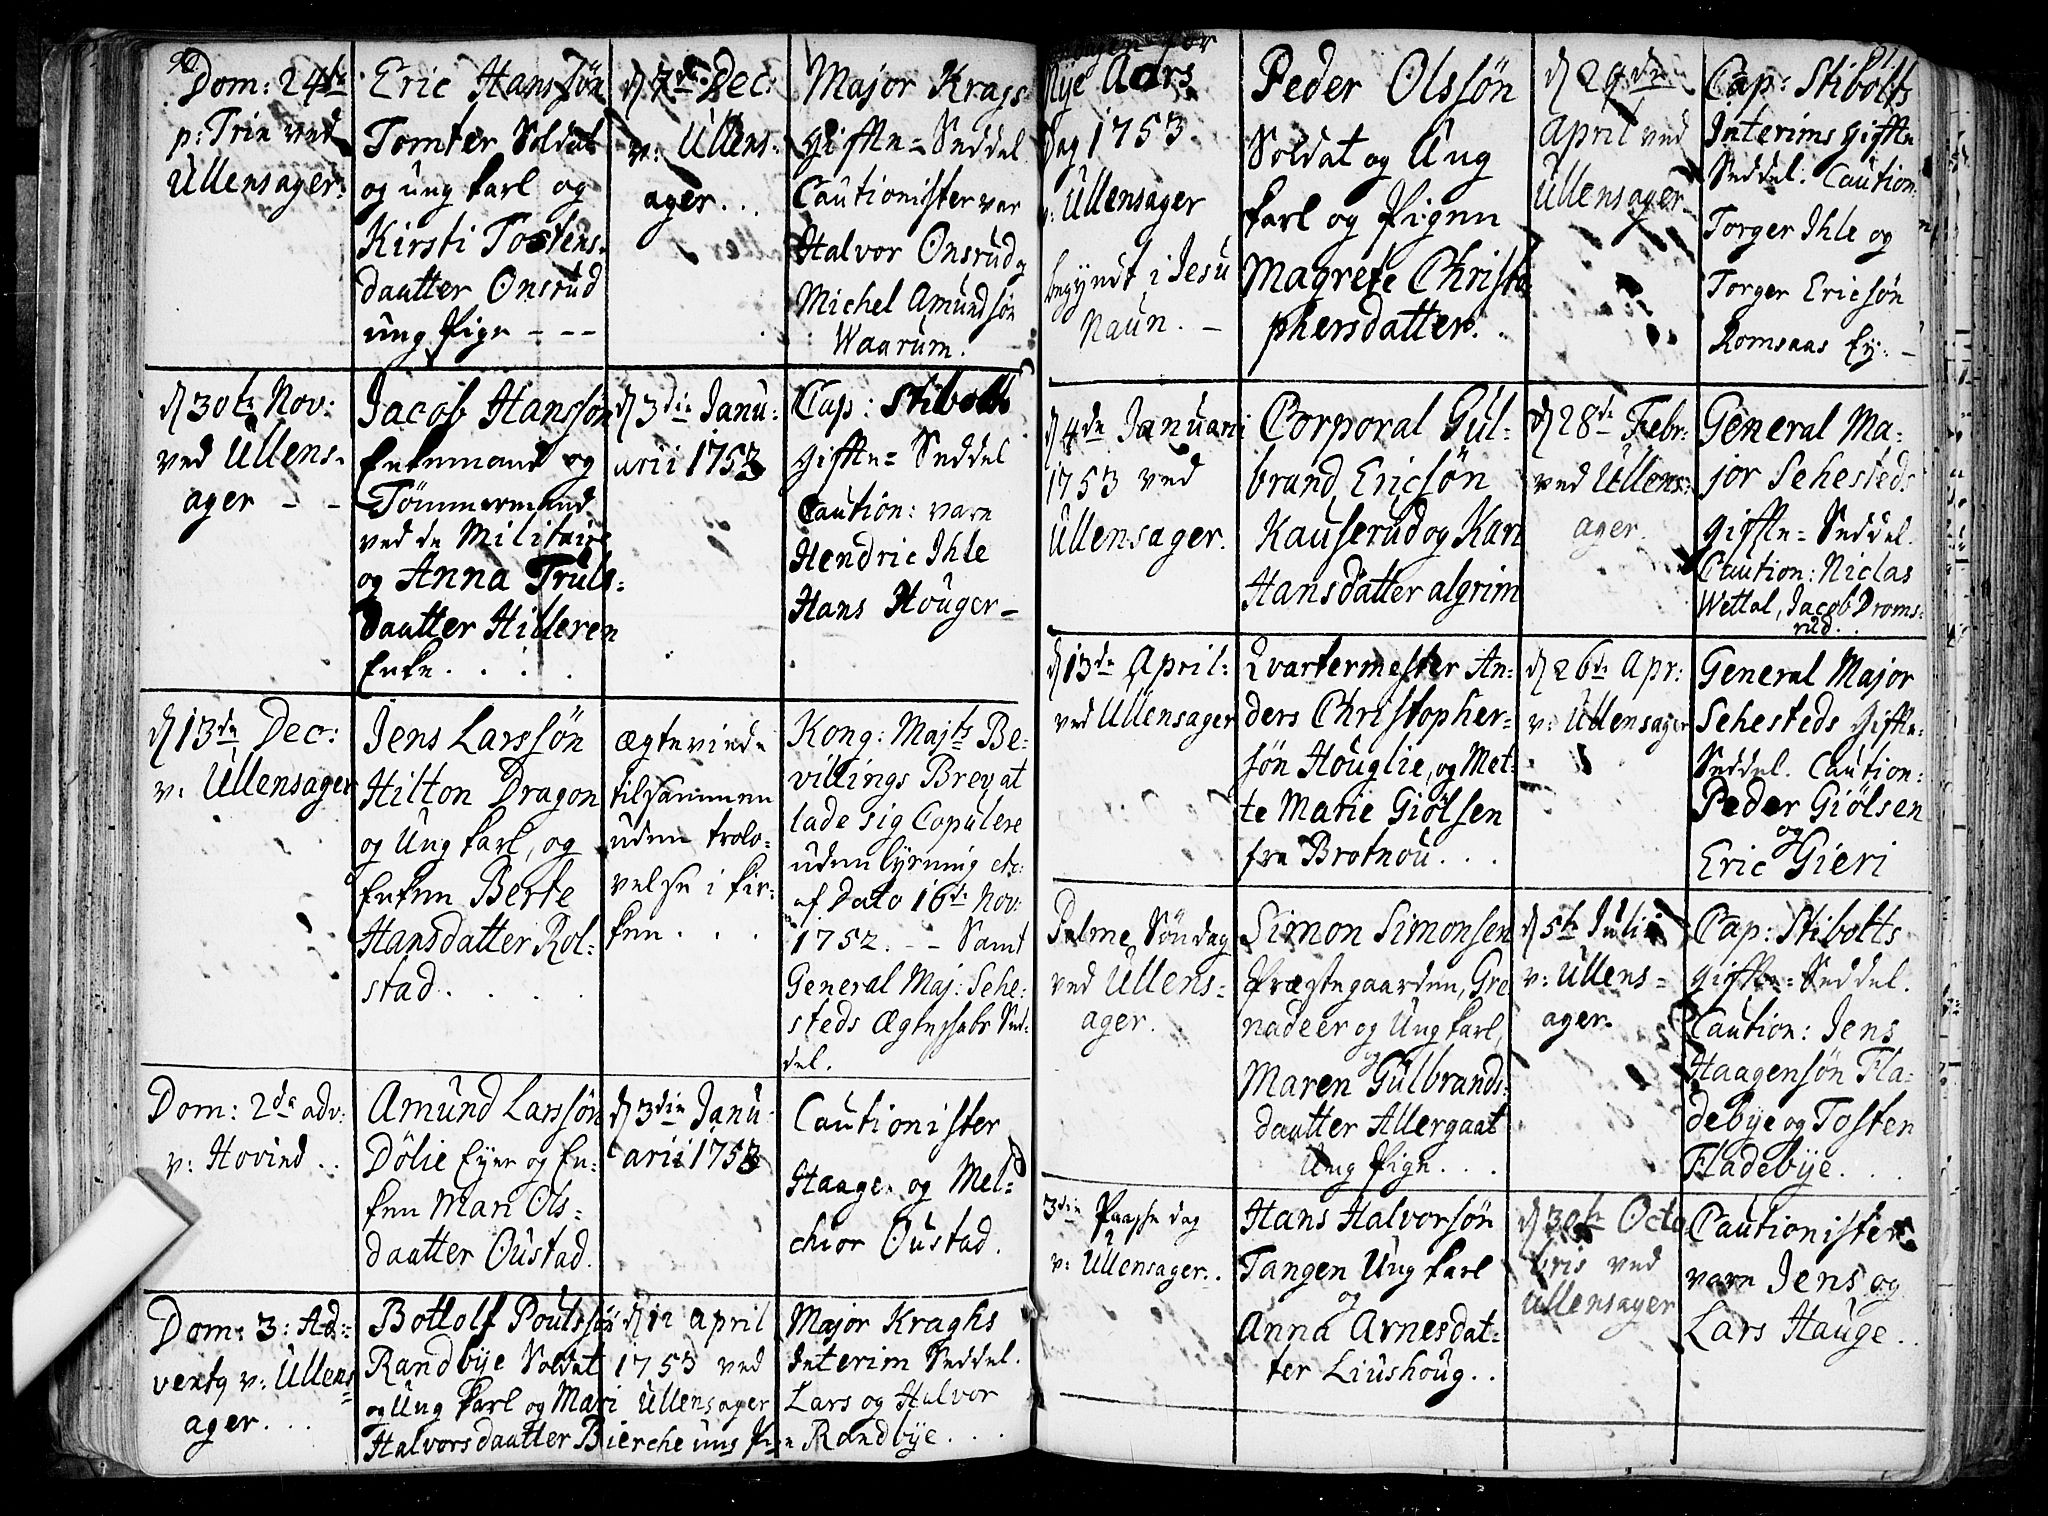 90.
Dom: 24de
p: Trin ved
Ullensager:
Eric Hanssøn
Tomter Soldat
og ung karl og
Kirsti Tostens-
daatter Onsrud
ung Pige - - -
d 7de Dec:
v: Ullens-
ager . . .
Major Krags
Gifte= Seddel
Cautionister var
Halvor Onsrud og
Michel Amundsøn
Waarum.
d 30te Nov:
ved Ullens-
ager - -
Jacob Hanssøn
Enkemand og
Tømmermand
ved de Militaire
og Anna Truls-
daatter Hilleren
Enke . . .
d 3die Janu-
arii 1753
Cap: Stibolts
Gifte= Seddel
Caution: vare
Hendric Ihle
Hans Houger -
d 13de Dec:
v: Ullensager
Jens Larssøn
Hilton Dragon
og Ung karl, og
Enken Berte
Hansdatter Rol-
stad . . . .
ægteviede
tilsammen
uden trolo-
velse i kir-
ken . . .
Kong: Majts Be-
villings Brev at
lade sig Copulere
uden lysning etc:
af Dato 16de Nov:
1752. - - Samt
General Maj: Sehe-
steds Ægteskabs Sed-
del.
Dom: 2de adv:
v: Hovind . .
Amund Larssøn
Dölie Eyer og En-
ken Mari Ols-
daatter Oustad.
d 3die Janu-
arii 1753
Cautionister
Haage og Mel-
chior Oustad.
Dom: 3: Ad-
vents v: Ullens-
ager . . .
Bottolf Poulssøn
Randbye Soldat
og Ung karl og Mari
Halvorsdaatter Bierche ung Pige
d 12 April
1753 ved
Ullensager
Major Kraghs
Interim Seddel.
Lars og Halvor
Randbye . . .
91.
Nye Aars
Dag 1753.
v: Ullensager
begyndt i Jesu
Naun. -
Peder Olssøn
Soldat og Ung
karl og Pigen
Magrete Christo
phersdatter. .
d 29de
April ved
Ullensager
Cap: Stibolts
Interims Gifte
Seddel. Caution:
Torger Ihle og
Torger Ericsøn
Romsaas Ey: -
d 4de Januari
1753 ved
Ullensager.
Corporal Gul-
brand Ericsøn
Kauserud og Kari
Hansdatter algrim
d 28de Febr:
ved Ullens-
ager.
General Ma-
jor Sehesteds
Gifte= Seddel.
Caution: Niclas
Wettal, Jacob Droms-
rud. .
d 13de April:
ved Ullensager
Qvartermester An-
ders Christopher-
søn Houglie, og Met-
te Marie Giölsen
fra Brotnou . . .
d 26de Apr:
v: Ullensager
General Major
Sehesteds Gifte-
Seddel. Caution:
Peder Giölsen
og
Eric Gieri
Palme Söndag
ved Ullens-
ager.
Simon Simonsen
Præstegaarden, Gre
nadeer og Ung karl,
og
Maren Gulbrands-
daatter Allergaat
Ung Pige . . .
d 5te Julii
v: Ullens-
ager.
Cap: Stibolts
Gifte= Seddel.
Caution: Jens
Haagensøn Fla-
debye og Tosten
Fladebye. . .
3die Paaske dag
v: Ullensager. .
Hans Halvorsøn
Tangen Ung karl
og
Anna Arnesdat-
ter Liushoug. .
d 30te Octo
bris ved
Ullensager
Cautionister
vare Jens og
Lars Hauge.